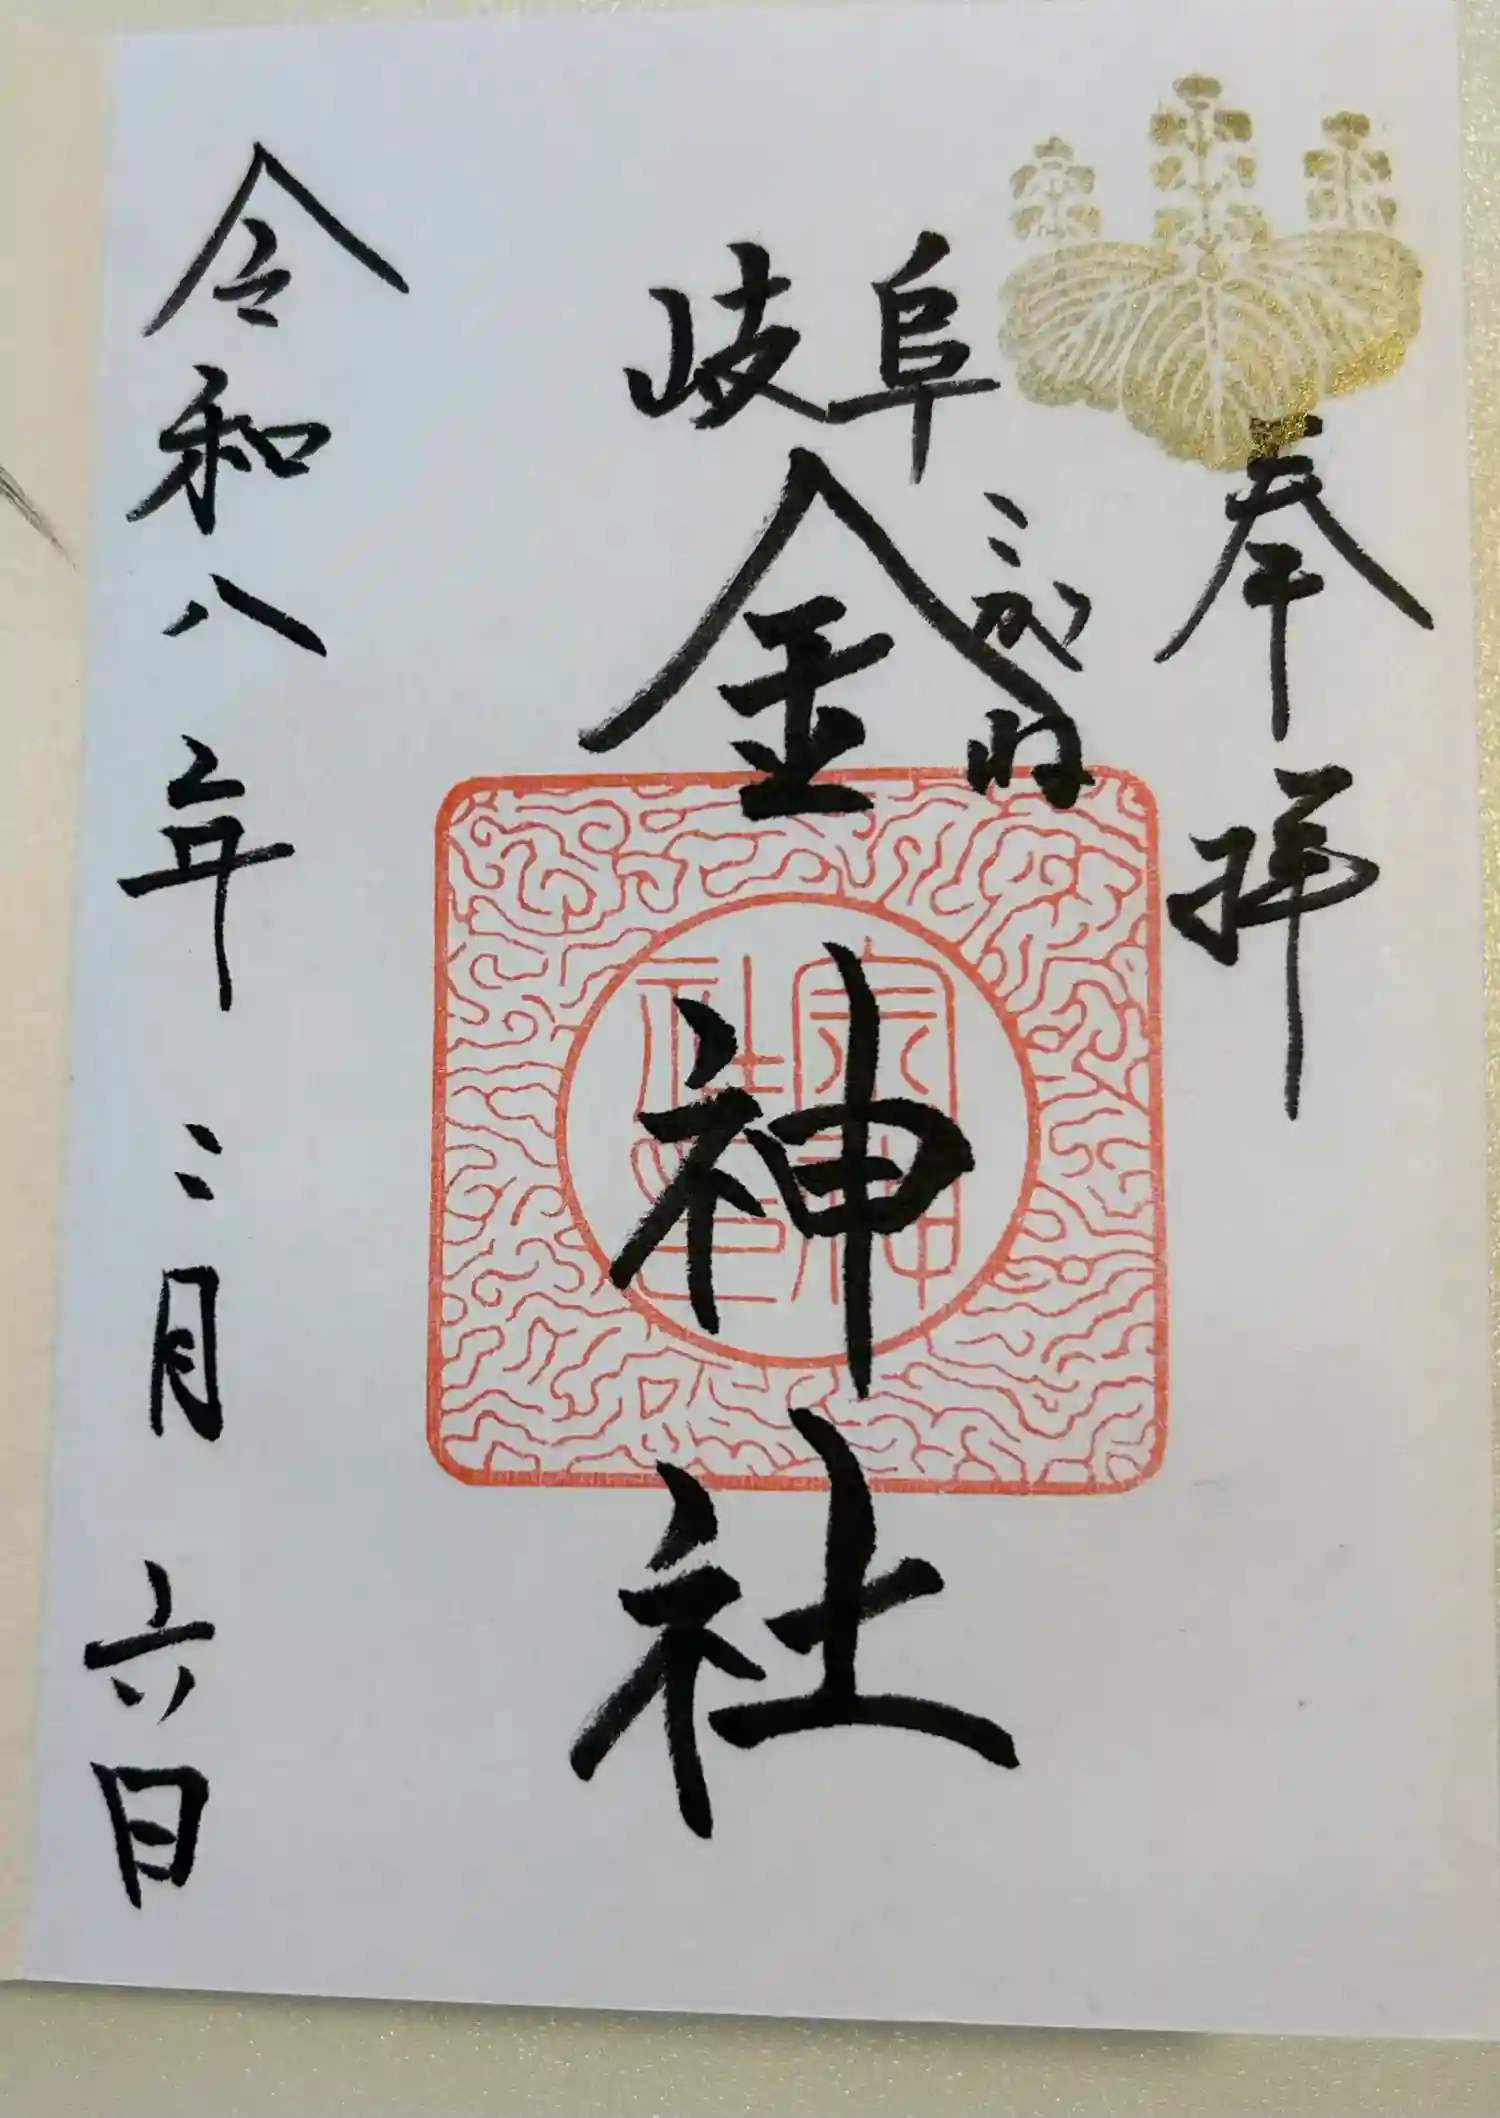 奉拝
岐阜
こがね
金神社
金神
社印
令和八年二月六日